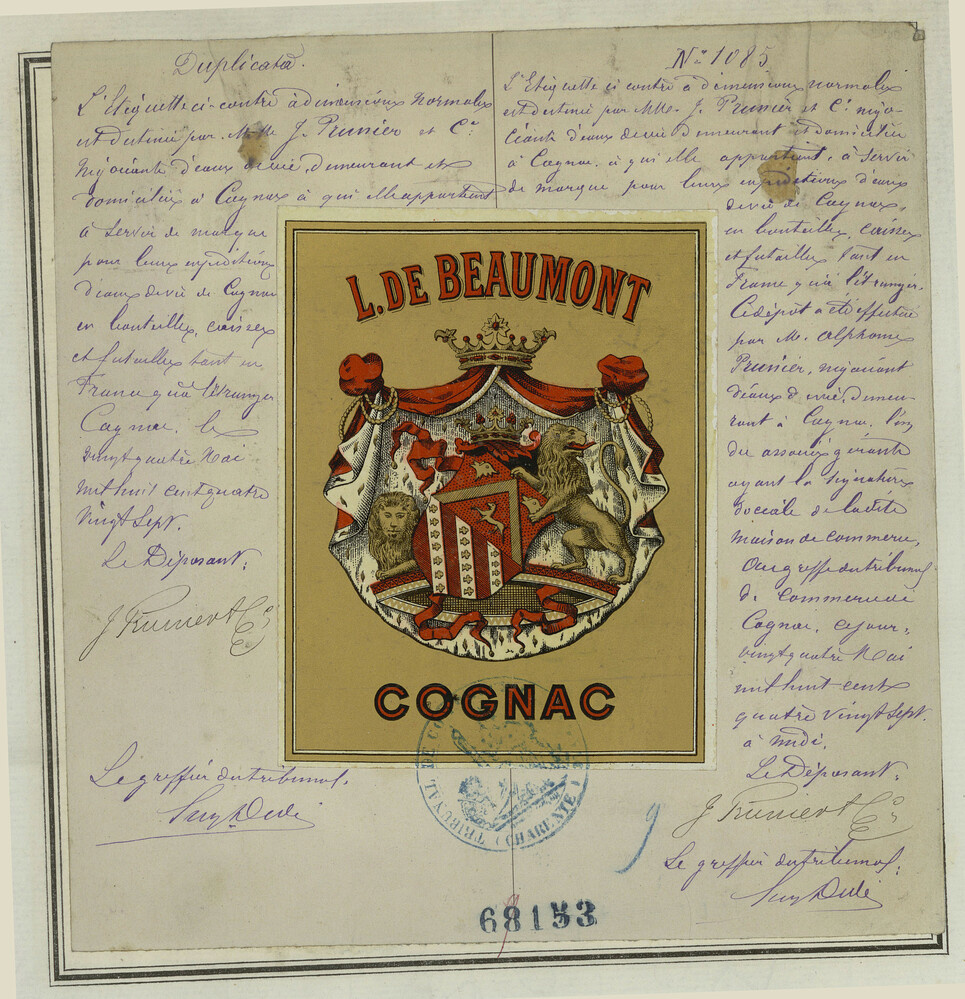 Duplicata.
L'Etiquette ci-contre à dimensions normales
est destinée par M.M. J. Prunier et Cie
négociants d'eaux de vie, demeurant et
domiciliés à Cognac à qui elle appartient
à servir de marque
pour leurs expéditions
d'eaux de vie de Cognac
en bouteilles, caisses
et futailles tant en
France qu'à l'étranger
Cognac, le
vingt quatre Mai
mil huit cent quatre
vingt sept.
Le Déposant,
J Prunier & Cie
Le greffier du tribunal,
No 1085
L'Etiquette ci contre à dimensions normales
est destinée par MM. J. Prunier et Cie négo-
ciants d'eaux de vie demeurant et domiciliés
à Cognac, à qui elle appartient, à servir
de marque pour leurs expéditions d'eaux
de vie de Cognac,
en bouteilles, caisses
et futailles tant en
France qu'à l'étranger.
Ce dépôt a été effectué
par M. Alphonse
Prunier, négociant
d'eaux de vie, demeu-
rant à Cognac, l'un
des associés gérants
ayant la signature
sociale de la dite
maison de commerce,
Au greffe du tribunal
de commerce de
Cognac, ce jour,
vingt quatre Mai
mil huit cent
quatre vingt sept.
à midi.
Le Déposant,
J Prunier & Cie
Le greffier du tribunal,
L. DE BEAUMONT
COGNAC
TRIBUNAL DE CO
(CHARENTE)
9
68153